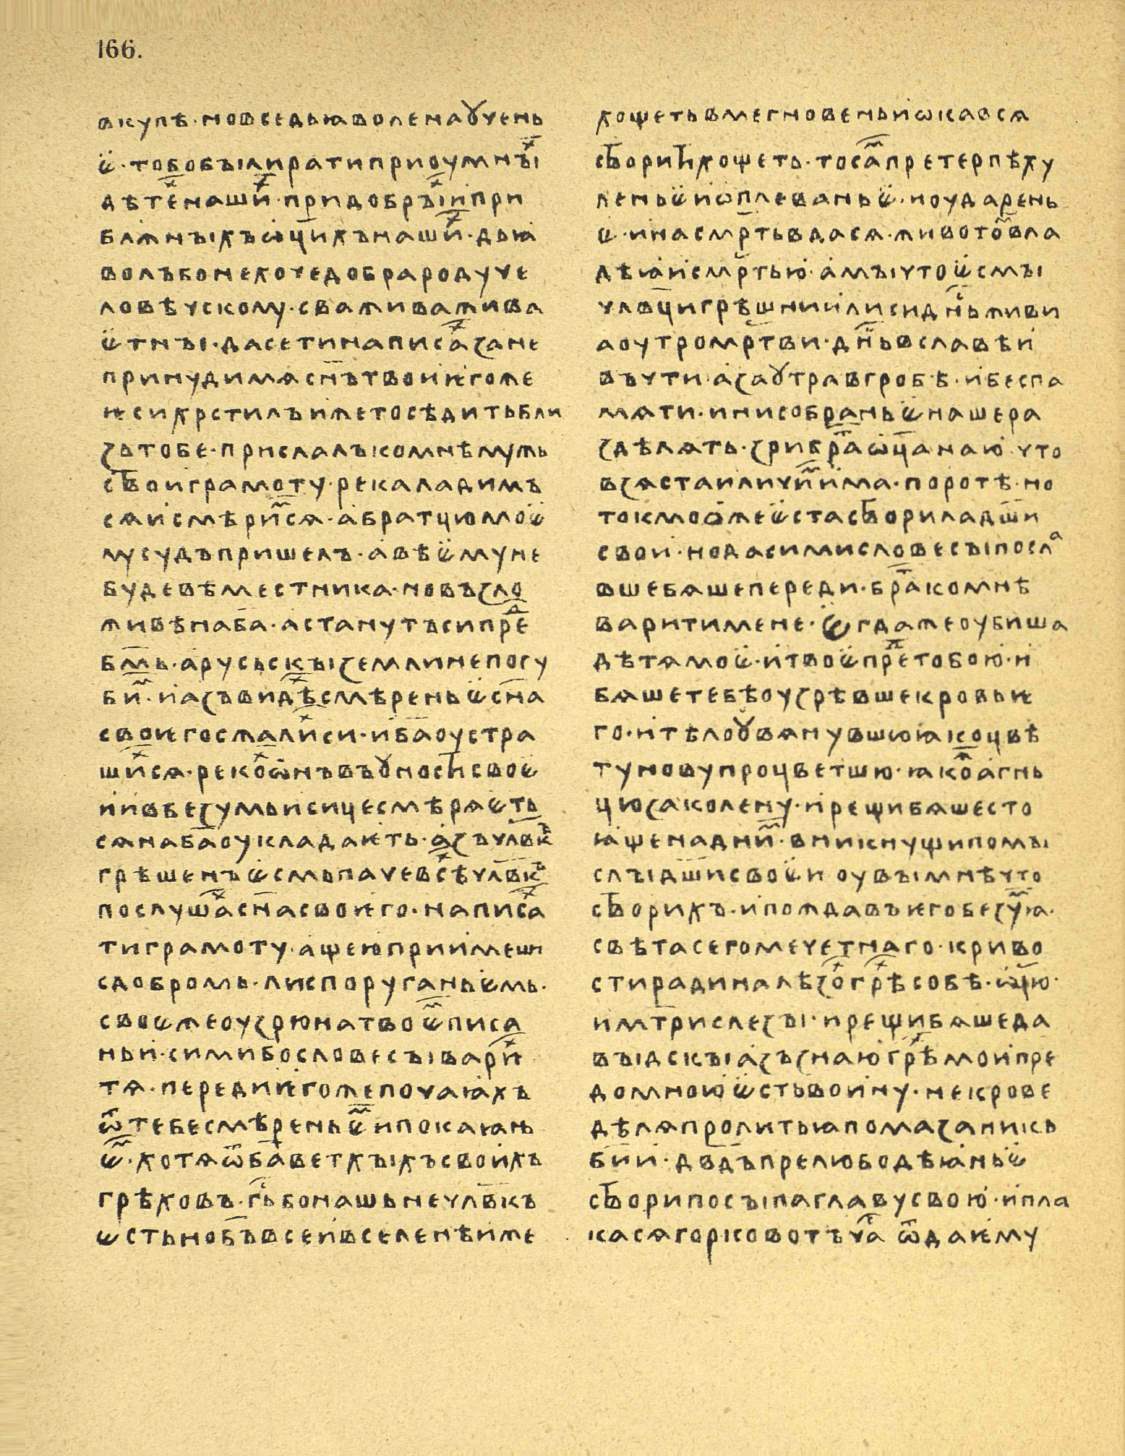 166.
вкупѣ · но все дьꙗволе наꙋчень
є · то бо быⷧ҇и рати при оумнꙑⷯ
дѣтеⷯ наши · при добрꙑⷯ и при
блжнꙑхъ ѡц҃ихъ нашиⷯ · дьꙗ
волъ бо не хоче добра роду че
ловѣчскому · сваживаживa
єтнꙑ · да се ти написаⷯ зане
принуди мѧ сн҃ъ твои ѥгоже
ѥси хрстилъ иже то сѣдить бли
зь тобе · прислалъ ко мнѣ мужь
свои грамоту · река ладимъ
сѧ и смѣримсѧ · а братцю моє
му судъ пришелъ · а вѣ єму не
будевѣ местника · но възло
живѣ на б҃а · а стануть си преⷣ
бм҃ь · а русьскꙑ земли не погу
бим · и азъ видⷯѣ смѣреньє сн҃а
своѥго сжалиⷯси · и б҃а оустра
шихсѧ · рекохъ ѡнъ въ ꙋности своє
и и в безумьи сице смѣрѧєть
сѧ на б҃а оукладаѥть · азъ члв҃къ
грѣшенъ єсмь паче всѣⷯ члв҃къ
послушаⷯ сн҃а своѥго · написаⷯ
ти грамоту · аще ю приимеши
с добромь · ли с поруганьємь ·
своє же оузрю на твоємⷨ писа
ньи · сими бо словесꙑ варих
тѧ · переди ѥгоже почаꙗхъ
ѿ тебе смѣреньємⷨ и покаꙗнь
є · хотѧ ѿ б҃а ветхꙑхъ своихъ
грѣховъ · гь҃ бо нашь не члв҃къ
єсть но б҃ъ всеи вселенѣ иже
хощеть в мегновеньи ѡка всѧ
створити хощеть · то самⷨ претерпѣ ху
леньє и ѡплеваньє · и оударень
є · и на смр҃ть вдасѧ · животомⷨ вла
дѣꙗ и смр҃тью · а мꙑ что єсмꙑ
члв҃ци грѣшнии и лиси дн҃ь живи
а оутро мр҃тви · дн҃ь в славѣ и
въ чти · а заꙋтра в гробѣ · и бес па
мѧти · ини собраньє наше ра
здѣлѧть · зри браⷮ ѡц҃а наю · что
взѧста или чимⷨ има · по ротѣ · но
токмо ѡже єста створила дш҃и
своѥи · но да сими словесꙑ послаⷧ
вше бѧше переди · браⷮ ко мнѣ
варити мене · єгда же оубиша
дѣтѧ моє · и твоє преⷣ тобою · и
бѧше тебѣ оузрѣвше кровь ѥ
го · и тѣло ꙋвѧнувшю ꙗко цвѣ
ту нову процветшю · ꙗкоже агнь
цю заколену · и рещи бѧше сто
ꙗще над нимⷨ · вникнущи помꙑ
слꙑ дш҃и своєи · оувꙑ мнѣ что
створихъ · и пождавъ ѥго безумⷨꙗ ·
свѣта сего мечетнаго · криво
сти ради налѣзоⷯ грѣⷯ собѣ · ѡц҃ю ·
и мт҃ри слезꙑ · и рещи бѧше дв
вꙑдскꙑ азъ знаю грѣⷯ мои пре
до мною єсть воину · не крове
дѣлѧ пролитьꙗ помазаникъ
би҃и · дв҃дъ прелюбодѣꙗньє
створи посꙑпа главу свою · и пла
касѧ горко во тъ чаⷭ ѿда ѥму